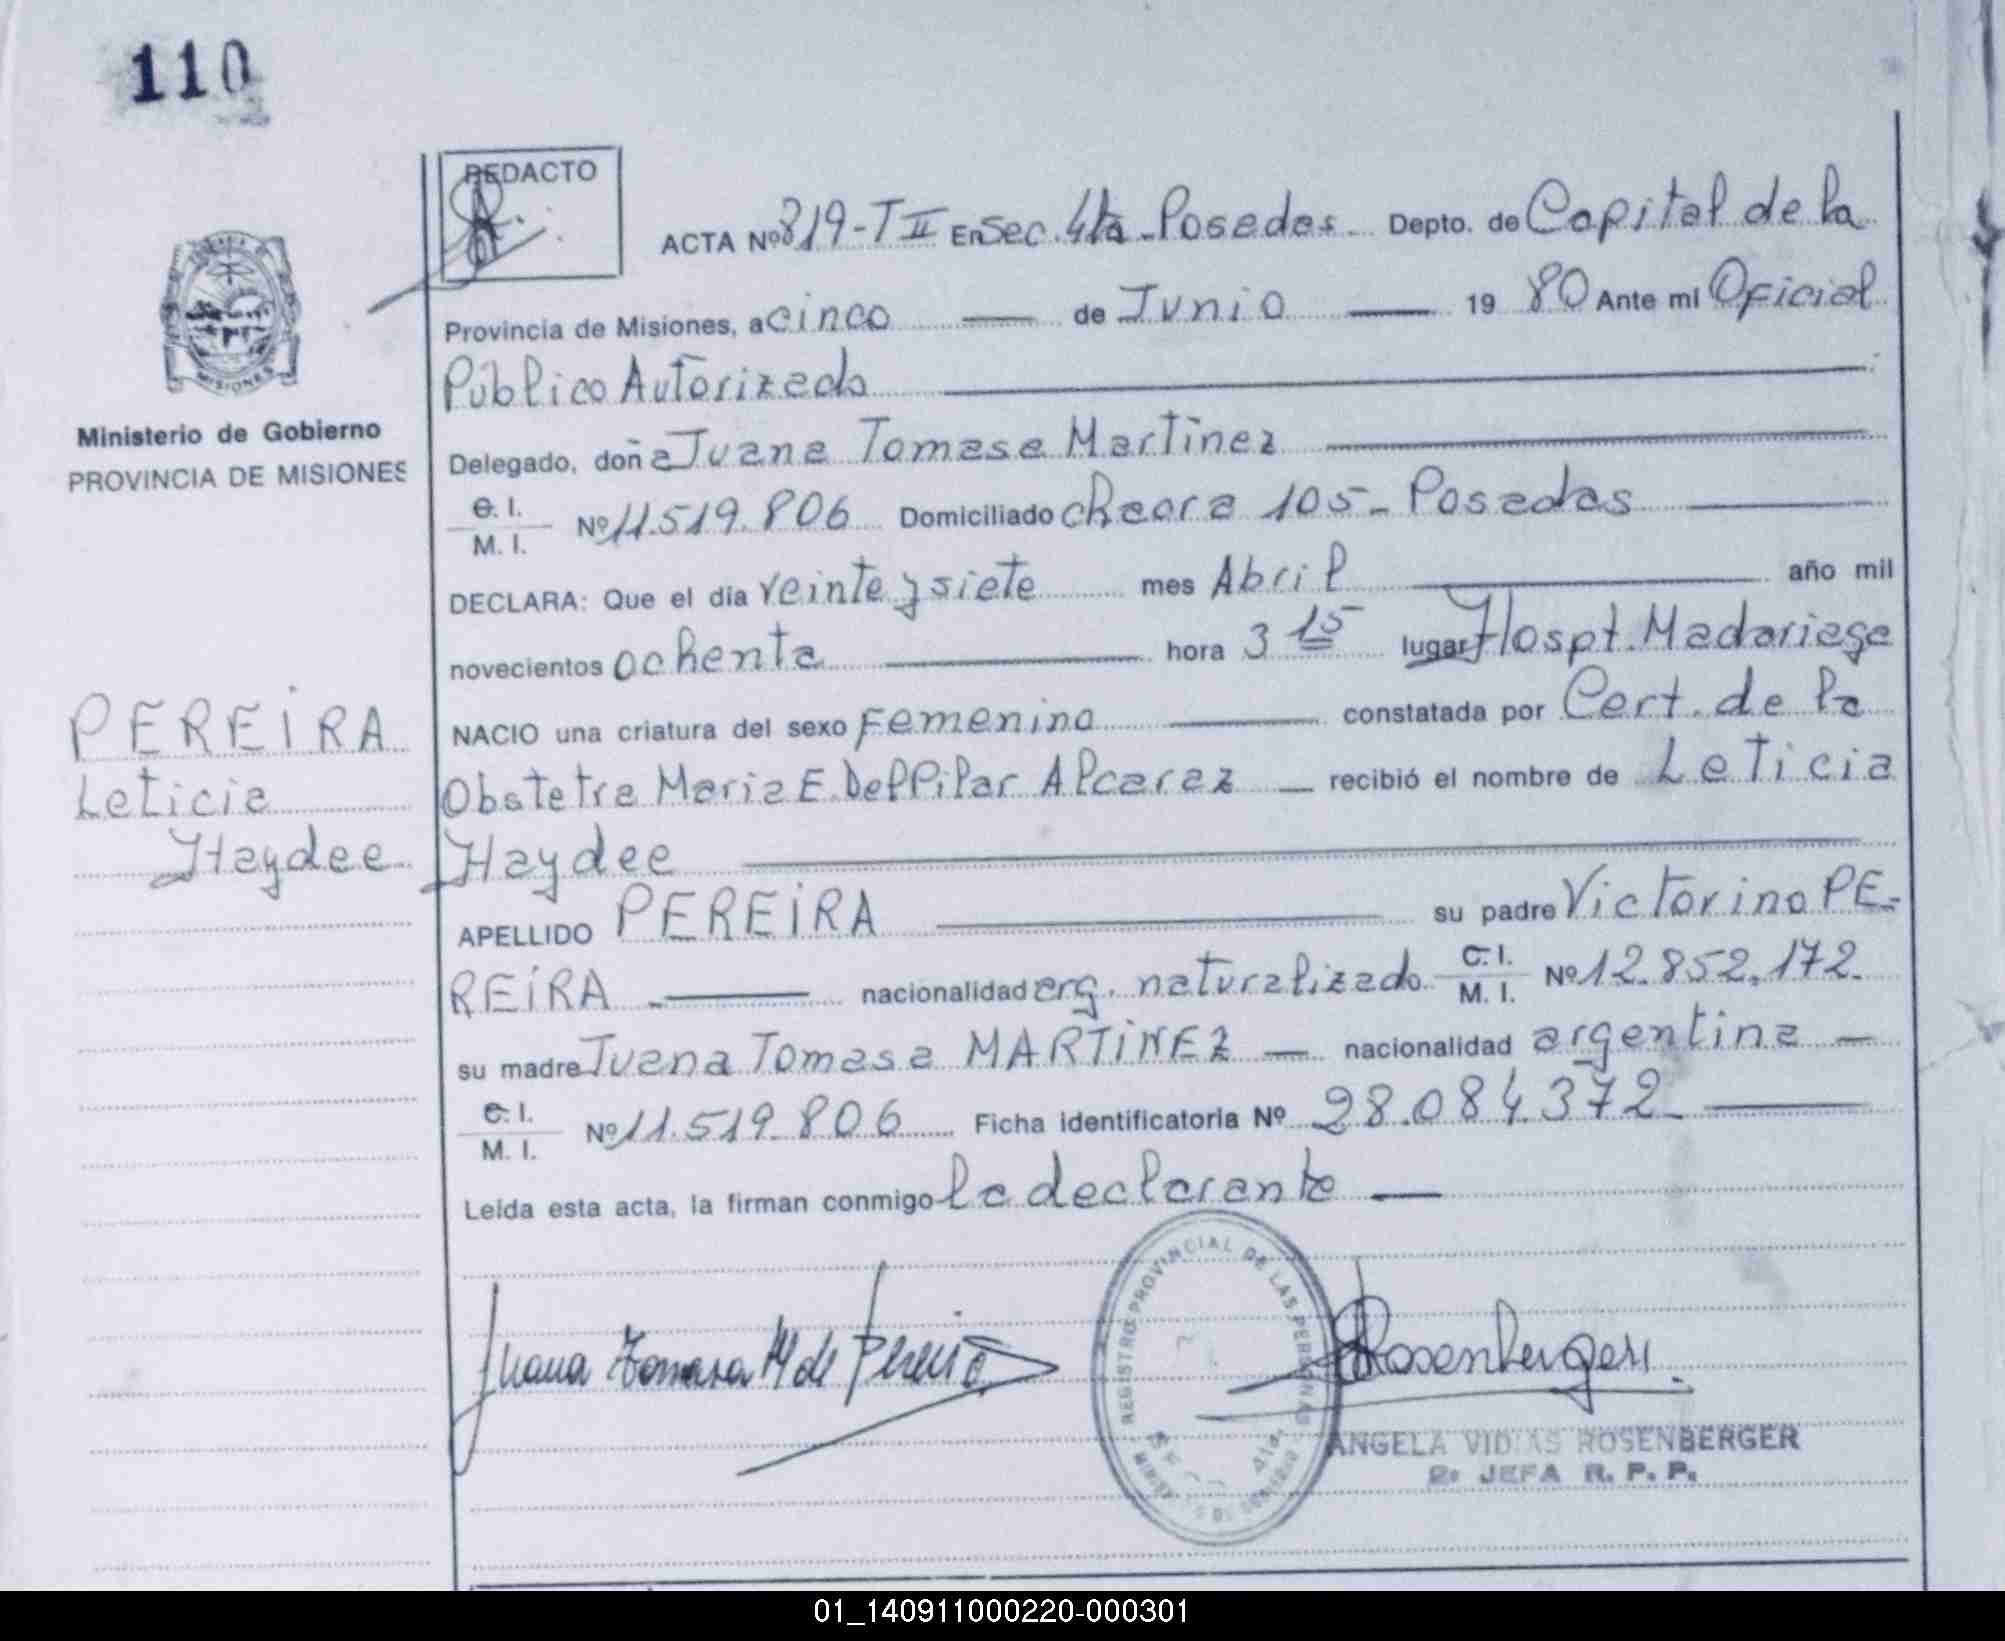 110
REDACTO
ACTA Nº 819-T II En Sec. 4ta - Posadas Depto. de Capital de la
Provincia de Misiones, a cinco de Junio 19 80 Ante mi Oficial
Público Autorizado
Delegado, doña Juana Tomasa Martinez
C. I. M. I. Nº 11.519.806 Domiciliado chacra 105 - Posadas
DECLARA: Que el día veinte y siete mes Abril año mil
novecientos ochenta hora 3 15 lugar Hospt. Madariaga
NACIO una criatura del sexo Femenino constatada por Cert. de la
Obstetra Maria E. Del Pilar Alcaraz recibió el nombre de Leticia
Haydee
APELLIDO PEREIRA su padre Victorino PE-
REIRA nacionalidad arg. naturalizado C. I. M. I. Nº 12.852.172
su madre Juana Tomasa MARTINEZ nacionalidad argentina
C. I. M. I. Nº 11.519.806 Ficha identificatoria Nº 28.084.372
Leída esta acta, la firman conmigo la declarante
MISIONES
Ministerio de Gobierno
PROVINCIA DE MISIONES
PEREIRA
Leticia
Haydee
Juana Tomasa M de Pereira
REGISTRO PROVINCIAL DE LAS PERSONAS
4ta.
Rosenberger
ANGELA VIDIAS ROSENBERGER
2º JEFA R. P. P.
01_140911000220-000301